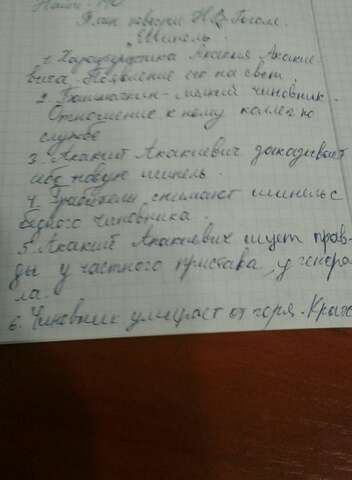 План повести Н.В. Гоголя.
„Шинель.
1. Характеристика Акакия Акакие-
вича. Появление его на свет.
2. Башмачкин - мелкий чиновник.
Отношение к нему коллег по
службе
3. Акакий Акакиевич заказывает
себе новую шинель.
4. Грабители снимают шинель с
бедного чиновника.
5. Акакий Акакиевич ищет прав-
ды у частного пристава, у генера-
ла.
6. Чиновник умирает от горя.